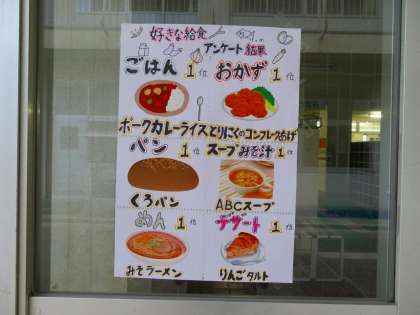 好きな給食
アンケート結果
ごはん 1位 おかず 1位
ポークカレーライス とりにくのコンフレークあげ
パン 1位 スープみそ汁 1位
くろパン ABCスープ
めん 1位 デザート 1位
みそラーメン りんごタルト